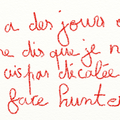 a des jours o
e dis que je n
uis pas décalée
face hunte